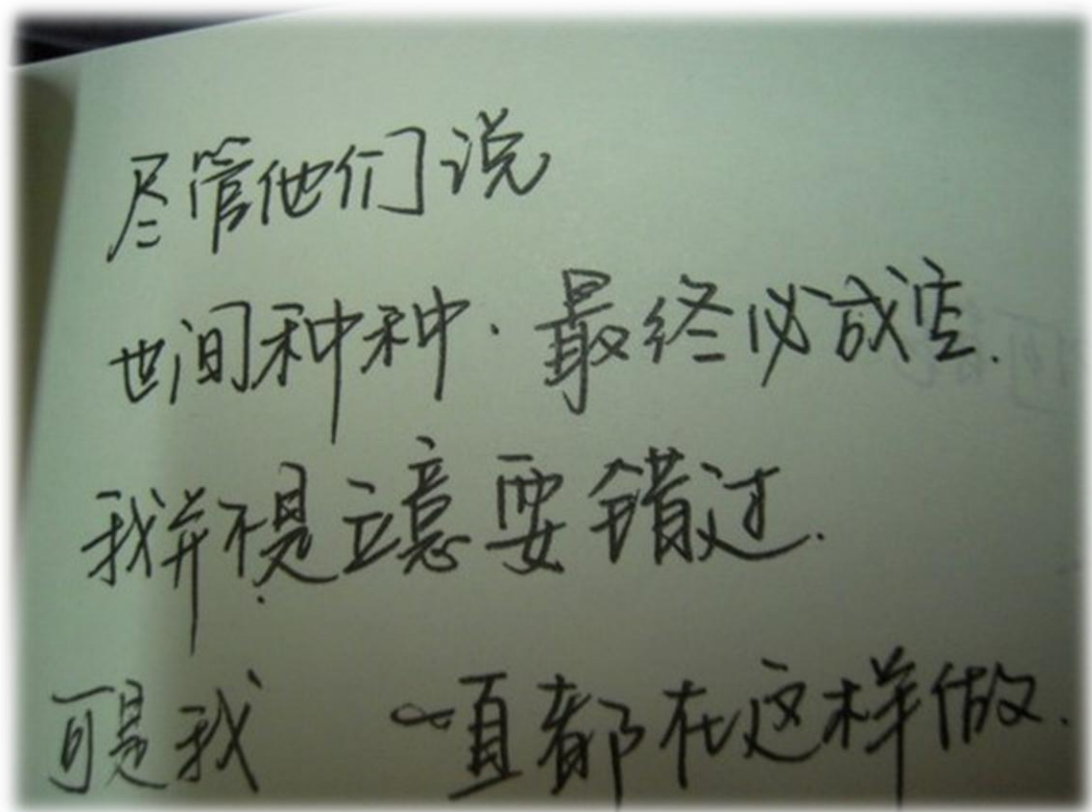 尽管他们说
世间种种.最终必成空.
我并不是立意要错过.
可是我 一直都在这样做.